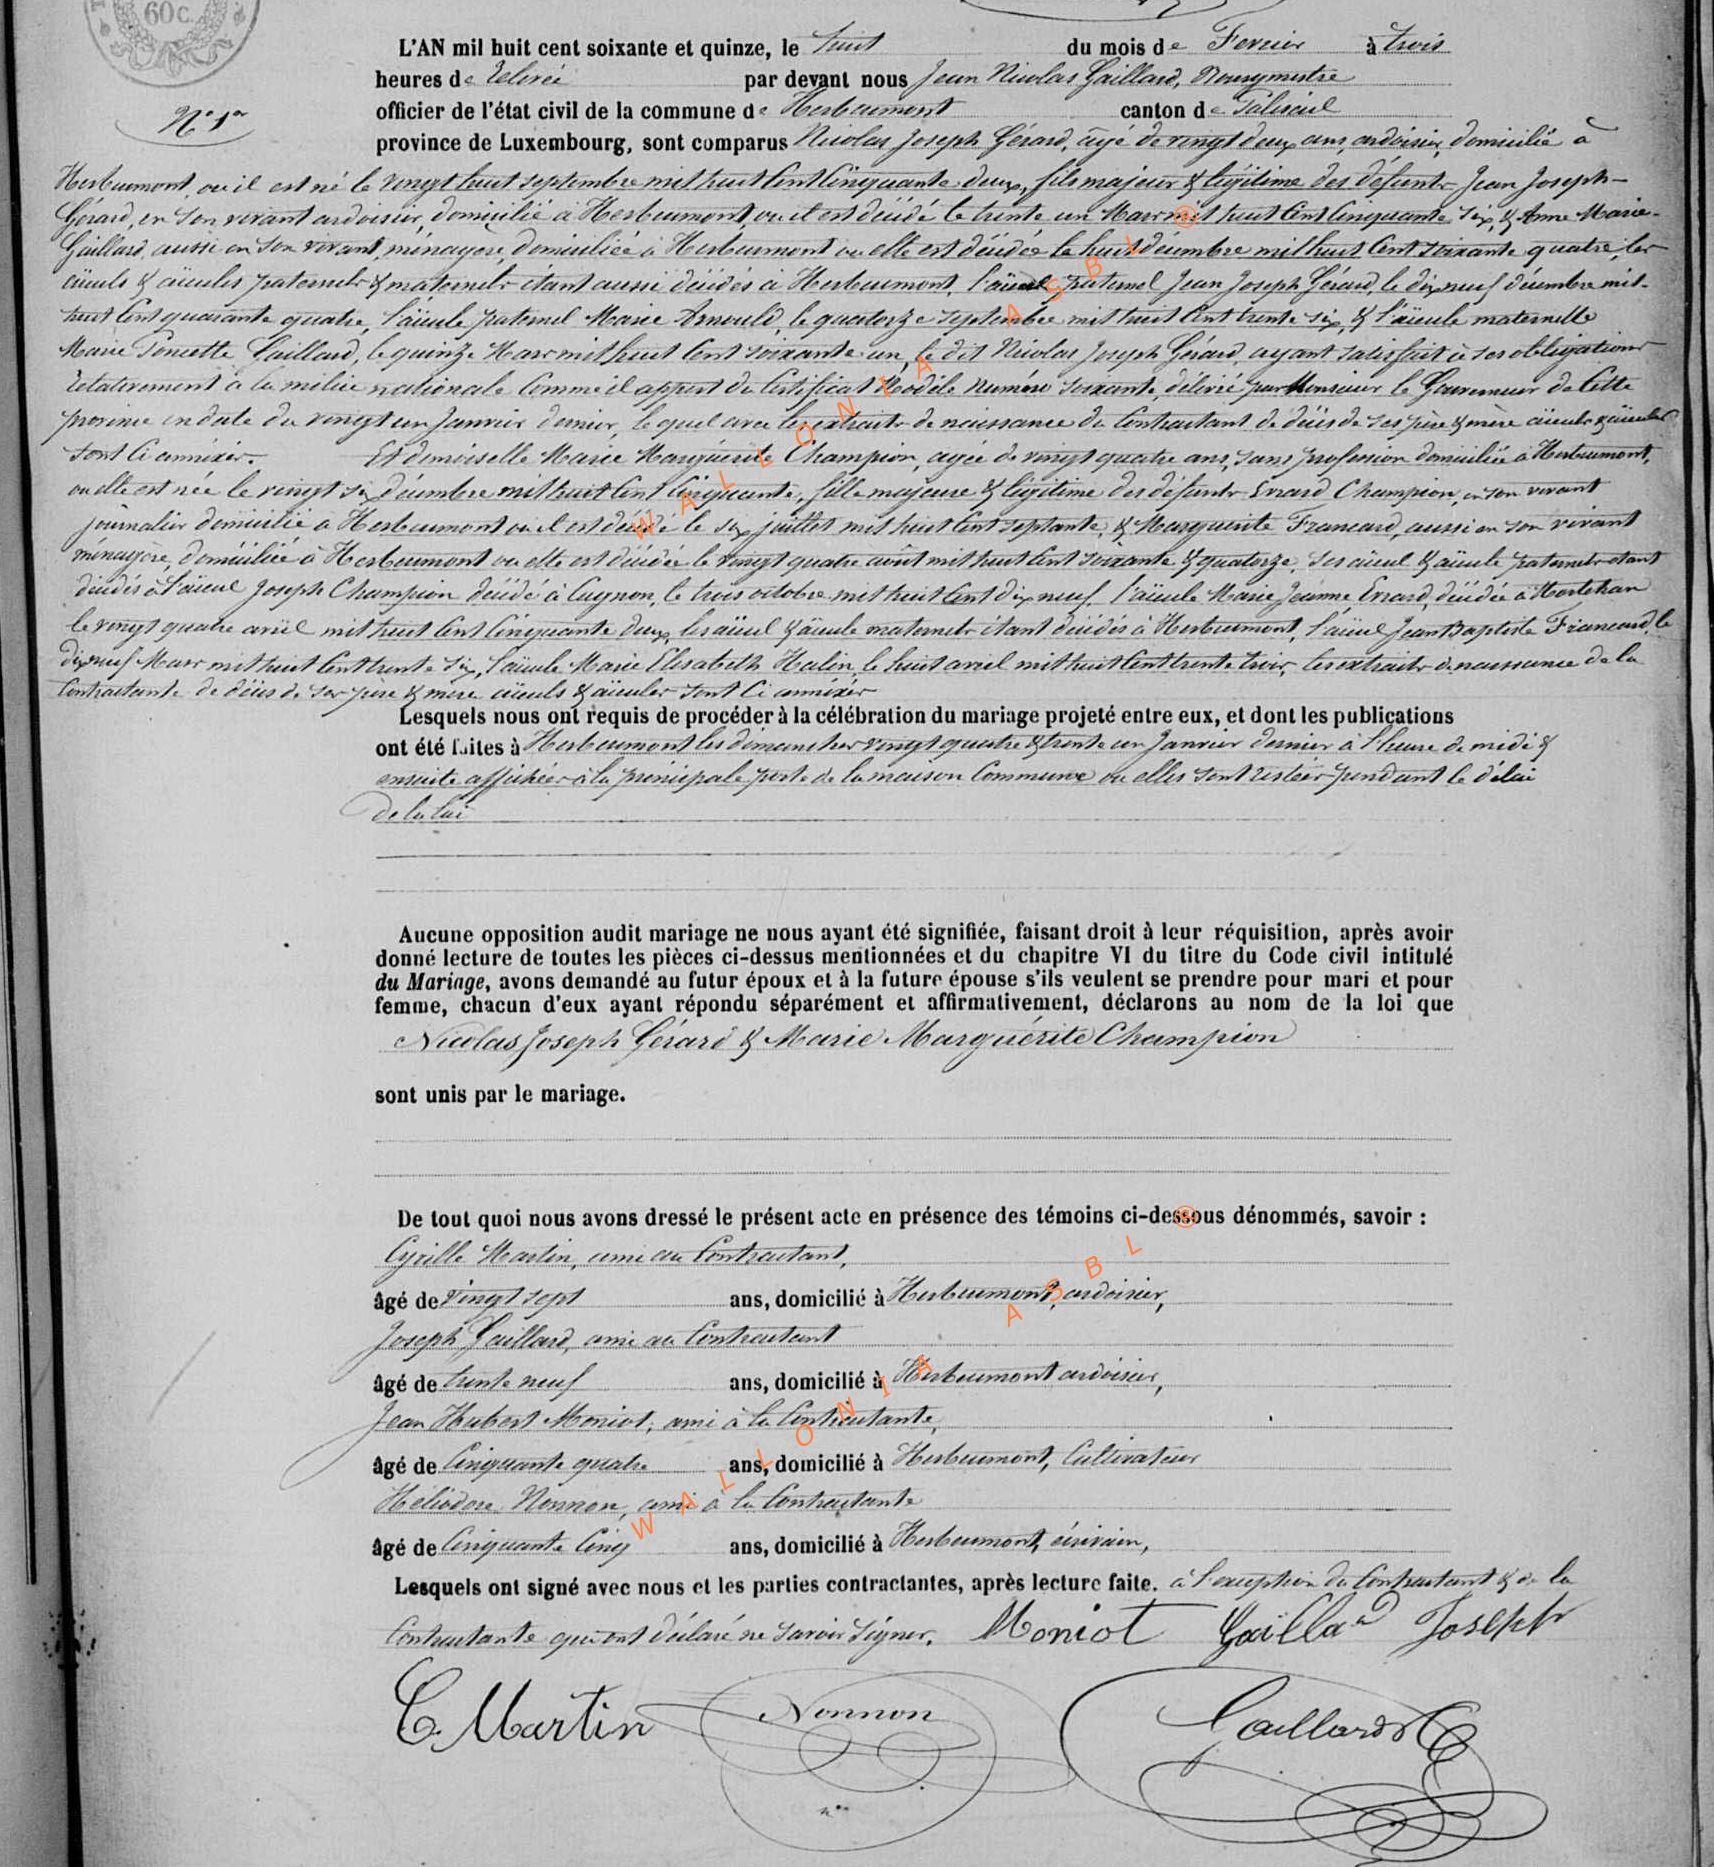 60 c.
L'AN mil huit cent soixante et quinze, le huit du mois de Fevrier à trois
heures de relevée par devant nous Jean Nicolas Gaillard, Bourgmestre
N° 1er
officier de l'état civil de la commune de Herbeumont canton de Paliseul
province de Luxembourg, sont comparus Nicolas Joseph Gérard, âgé de vingt deux ans, ardoisier, domicilié à
Herbeumont, ou il est né le vingt huit septembre mil huit cent cinquante deux, fils majeur & légitime des défunts Jean Joseph
Gérard, en son vivant ardoisier, domicilié à Herbeumont, ou il est décédé le trente un Mars mil huit cent cinquante six, & Anne Marie
Gaillard, aussi en son vivant ménagère, domiciliée à Herbeumont ou elle est décédée le huit décembre mil huit cent soixante quatre, les
aïeuls & aïeules paternels & maternels étant aussi décédés à Herbeumont, l'aïeul paternel Jean Joseph Gérard, le dix neuf décembre mil
huit cent quarante quatre, l'aïeule paternel Marie Arnould, le quatorze septembre mil huit cent trente six, & l'aïeule maternelle
Marie Poncette Gaillard, le quinze Mars mil huit cent soixante un, le dit Nicolas Joseph Gérard, ayant satisfait à ses obligations
relativement à la milice nationale comme il appert du certificat Modèle numéro soixante, délivré par Monsieur le Gouverneur de cette
province en date du vingt un Janvier dernier, lequel avec les extraits de naissance du contractant de décès de ses père & mère aïeuls & aïeules
sont ci annéxés. Et demoiselle Marie Marguérite Champion, agée de vingt quatre ans, sans profession domiciliée à Herbeumont,
ou elle est née le vingt six décembre mil huit cent cinquante, fille majeure & légitime des défunts Evrard Champion, en son vivant
journalier domicilié à Herbeumont ou il est décédé le six juillet mil huit cent septante, & Marguerite Francard, aussi en son vivant
ménagère, domiciliée à Herbeumont ou elle est décédée le vingt quatre août mil huit cent soixante & quatorze, ses aïeul & aïeule paternels étant
décédés à l'aïeul Joseph Champion décédé à Cugnon, le trois octobre mil huit cent dix neuf, l'aïeule Marie Jeanne Evrard, décédée à Mortehan
le vingt quatre avril mil huit cent cinquante deux, les aïeul & aïeule maternels étant décédés à Herbeumont, l'aïeul Jean Baptiste Francard, le
dix neuf Mars mil huit cent trente six, l'aïeule Marie Elisabeth Halin, le huit avril mil huit cent trente trois, les extraits de naissance de la
contractante de décès de ses père & mère aïeuls & aïeules sont ci annéxés
Lesquels nous ont requis de procéder à la célébration du mariage projeté entre eux, et dont les publications
ont été faites à Herbeumont les dimanches vingt quatre & trente un Janvier dernier à l'heure de midi &
ensuite affichées à la principale porte de la maison Commune ou elles sont restées pendant le délai
de la loi
Aucune opposition audit mariage ne nous ayant été signifiée, faisant droit à leur réquisition, après avoir
donné lecture de toutes les pièces ci-dessus mentionnées et du chapitre VI du titre du Code civil intitulé
du Mariage, avons demandé au futur époux et à la future épouse s'ils veulent se prendre pour mari et pour
femme, chacun d'eux ayant répondu séparément et affirmativement, déclarons au nom de la loi que
Nicolas Joseph Gérard & Marie Marguérite Champion
sont unis par le mariage.
De tout quoi nous avons dressé le présent acte en présence des témoins ci-dessous dénommés, savoir :
Cyrille Martin, ami au Contractant,
âgé de vingt sept ans, domicilié à Herbeumont, ardoisier,
Joseph Gaillard, ami au Contractant
âgé de trente neuf ans, domicilié à Herbeumont ardoisier,
Jean Hubert Moniot, ami à la Contractante,
âgé de Cinquante quatre ans, domicilié à Herbeumont, Cultivateur
Héliodore Nonnon, ami à la Contractante
âgé de Cinquante Cinq ans, domicilié à Herbeumont, écrivain,
Lesquels ont signé avec nous et les parties contractantes, après lecture faite. à l'exception du Contractant & de la
Contractante qui ont déclaré ne savoir signer. Moniot Gaillard Joseph
C. Martin Nonnon Gaillard
WALLONIA ASBL ®
WALLONIA ASBL ®